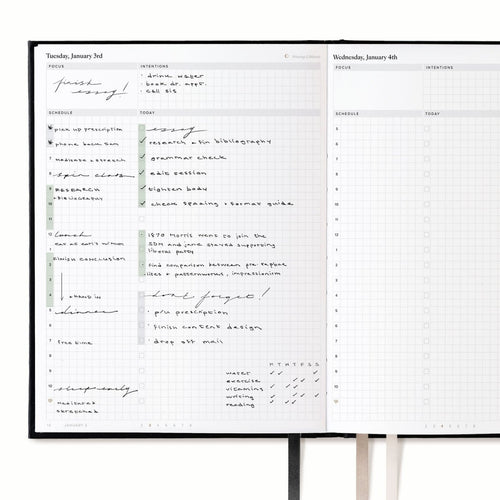 Tuesday, January 3rd
FOCUS
finish
essay!
INTENTIONS
· drink water
· book dr. appt.
· call sis
SCHEDULE
pick up prescription
phone back sam
7
8 spin class
9 RESEARCH
+ BIBLIOGRAPHY
10
11
12 lunch
eat at
1
2 finish conclusion
3
4 hand in
5 dinner
6
7 free time
8
9
10 sleep early
TODAY
essay
✓ research + fin bibliography
✓ grammar check
✓ edit session
✓ tighten body
✓ check spacing + format guide
· 1870 Morris went to join the
SDM and jane stayed supporting
liberal party
· find comparison between pre-raphae
lites + patternworks, impressionism
don't forget!
· p/u prescription
· finish content design
· drop off mail
M T W T F S S
water
exercise
vitamins
writing
reading
JANUARY 3
Wednesday, January 4th
FOCUS
INTENTIONS
SCHEDULE
TODAY
5
6
7
8
9
10
11
12
1
2
3
4
5
6
7
8
9
10